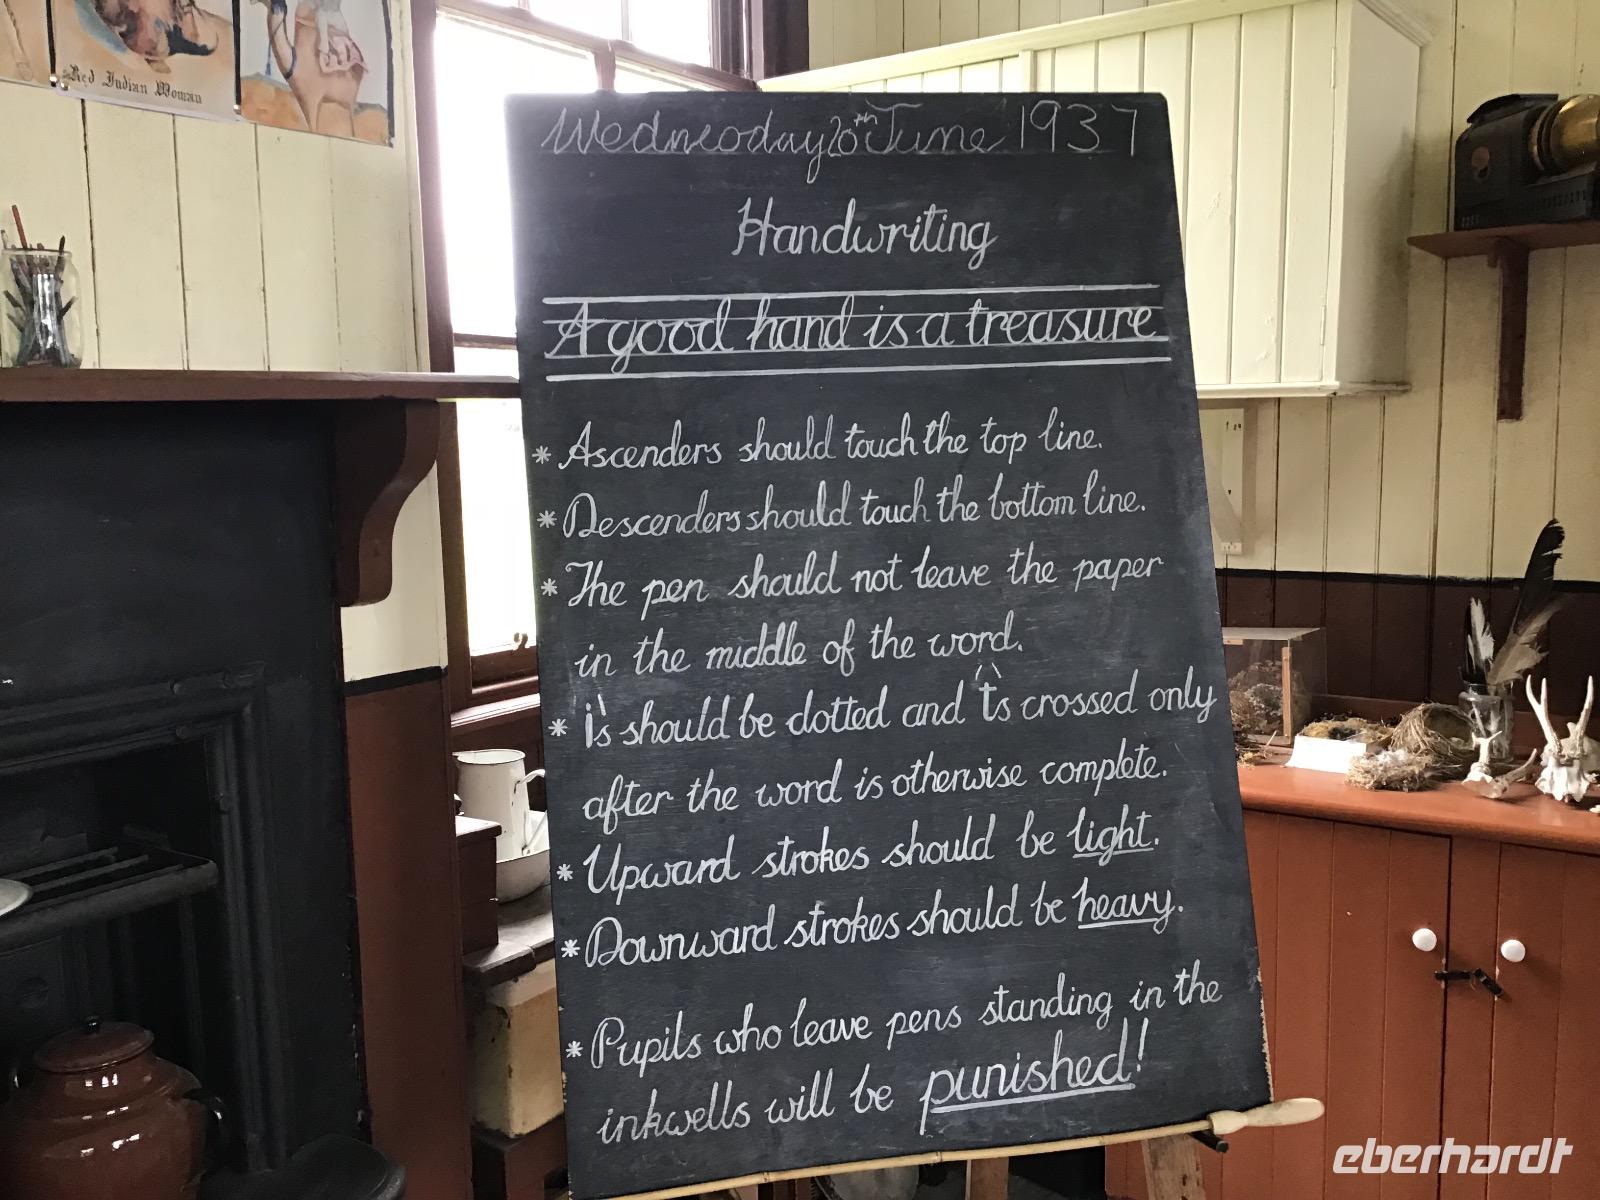 Red Indian Woman
Wednesday 20th June 1937
Handwriting
A good hand is a treasure
* Ascenders should touch the top line.
* Descenders should touch the bottom line.
* The pen should not leave the paper
in the middle of the word.
* i's should be dotted and t's crossed only
after the word is otherwise complete.
* Upward strokes should be light.
* Downward strokes should be heavy.
* Pupils who leave pens standing in the
inkwells will be punished!
eberhardt